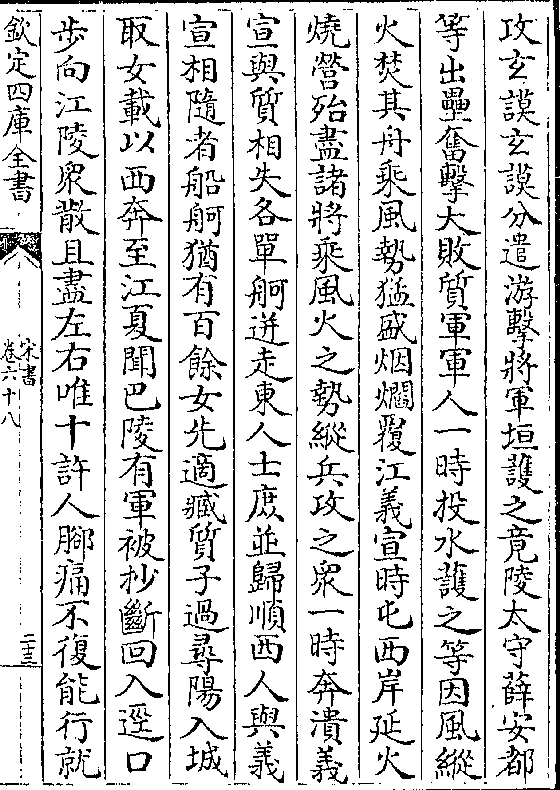 攻玄謨玄謨分遣游擊將軍垣護之竟陵太守薛安都
等出壘奮擊大敗質軍軍人一時投水護之等因風縱
火焚其舟乘風勢猛盛烟爓覆江義宣時屯西岸延火
燒營殆盡諸將乘風火之勢縱兵攻之衆一時奔潰義
宣與質相失各單舸迸走東人士庶並歸順西人與義
宣相隨者船舸猶有百餘女先適臧質子過尋陽入城
取女載以西奔至江夏聞巴陵有軍被抄斷回入逕口
步向江陵衆散且盡左右唯十許人腳痛不復能行就
欽定四庫全書
宋書
卷六十八
二十三